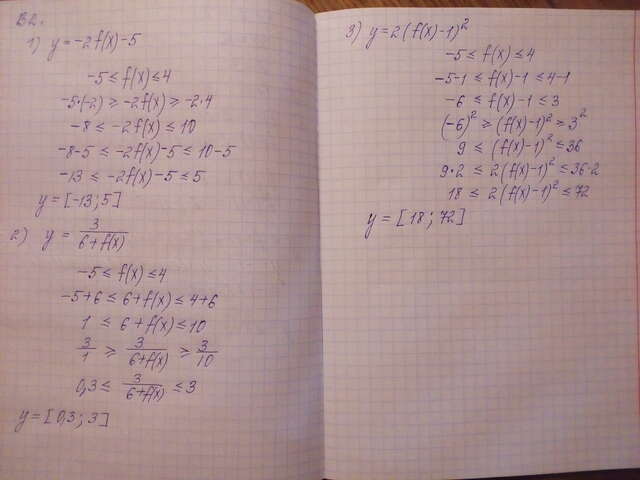 В2.
1) y = -2f(x)-5
-5 ≤ f(x) ≤ 4
-5·(-2) ≥ -2f(x) ≥ -2·4
-8 ≤ -2f(x) ≤ 10
-8-5 ≤ -2f(x)-5 ≤ 10-5
-13 ≤ -2f(x)-5 ≤ 5
y = [-13; 5]
2) y = 3/(6+f(x))
-5 ≤ f(x) ≤ 4
-5+6 ≤ 6+f(x) ≤ 4+6
1 ≤ 6+f(x) ≤ 10
3/1 ≥ 3/(6+f(x)) ≥ 3/10
0,3 ≤ 3/(6+f(x)) ≤ 3
y = [0,3; 3]
3) y = 2(f(x)-1)²
-5 ≤ f(x) ≤ 4
-5-1 ≤ f(x)-1 ≤ 4-1
-6 ≤ f(x)-1 ≤ 3
(-6)² ≥ (f(x)-1)² ≥ 3²
9 ≤ (f(x)-1)² ≤ 36
9·2 ≤ 2(f(x)-1)² ≤ 36·2
18 ≤ 2(f(x)-1)² ≤ 72
y = [18; 72]